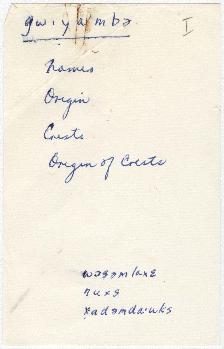 gw·iyaˑmbə I
Names
Origin
Crests
Origin of Crests
wəsəmlaxɛ
nuxs
xadəmdaˑuks